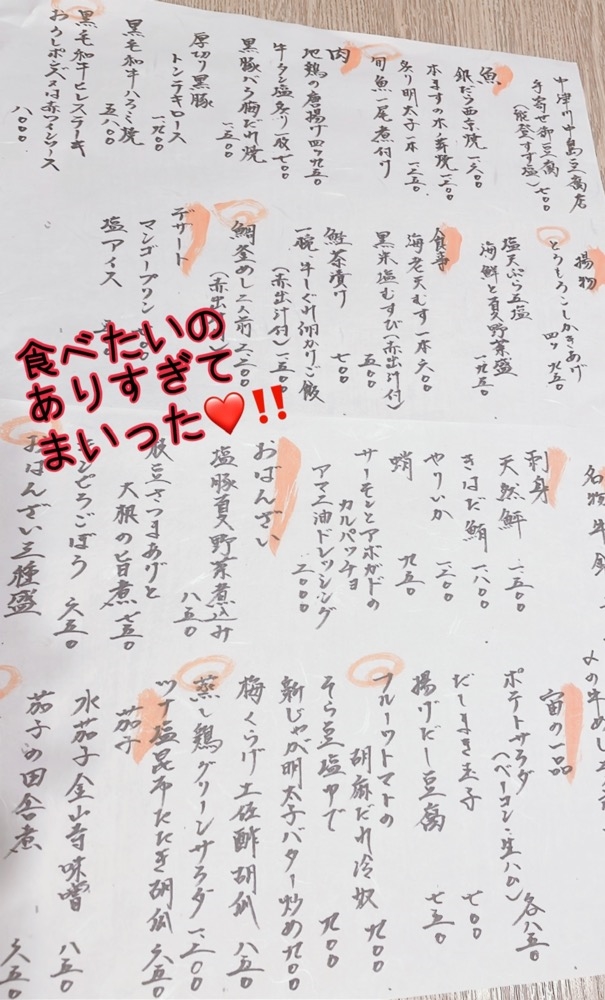 中津川中島豆腐店
手寄せ御豆腐 七〇〇
(能登すず塩)
魚
銀だら西京焼 一六〇〇
本ますの木の芽焼 一二〇〇
炙り明太子一本 一二五〇
旬魚一尾煮付け
肉
地鶏の唐揚げ 四ヶ 九五〇
牛タン塩炙り一枚 七〇〇
黒豚べろ梅だれ焼 一五〇〇
厚切り黒豚
トンテキロース 一九〇〇
黒毛和牛ハラミ焼 五八〇〇
黒毛和牛ヒレステーキ
おろしポンズ又は赤ワインソース 八〇〇〇
揚物
とうもろこしかきあげ 四ヶ 九五〇
塩天ぷら五塩
海鮮と夏野菜盛 一九五〇
食事
海老天むす一本 六〇〇
黒米塩むすび(赤出汁付) 五〇〇
鮭茶漬け 七〇〇
一椀、牛しぐれ卵かけご飯
(赤出汁付) 一五〇〇
鯛釜めし二人前 二八〇〇
(赤出汁付)
デザート
マンゴープリン
塩アイス
食べたいの
ありすぎて
まいった❤️‼️
刺身
天然鮃 一五〇〇
きはだ鮪 一八〇〇
やりいか 一二〇〇
蛸 九五〇
サーモンとアボガドの
カルパッチョ
アマニ油ドレッシング 二〇〇〇
おばんざい
塩豚夏野菜煮込み 八五〇
枝豆さつまあげと
大根の旨煮 七五〇
キンピラごぼう 六五〇
おばんざい三種盛
宙の一品
ポテトサラダ
(ベーコン・生ハム) 各八五〇
だしまき玉子 七〇〇
揚げだし豆腐 七五〇
フルーツトマトの
胡麻だれ冷奴 九〇〇
そら豆塩ゆで 九〇〇
新じゃが明太子バター炒め 九〇〇
梅くらげ土佐酢胡瓜 八五〇
蒸し鶏グリーンサラダ 一二〇〇
ツナ塩昆布たたき胡瓜 六五〇
茄子
水茄子金山寺味噌 八五〇
茄子の田舎煮 六五〇